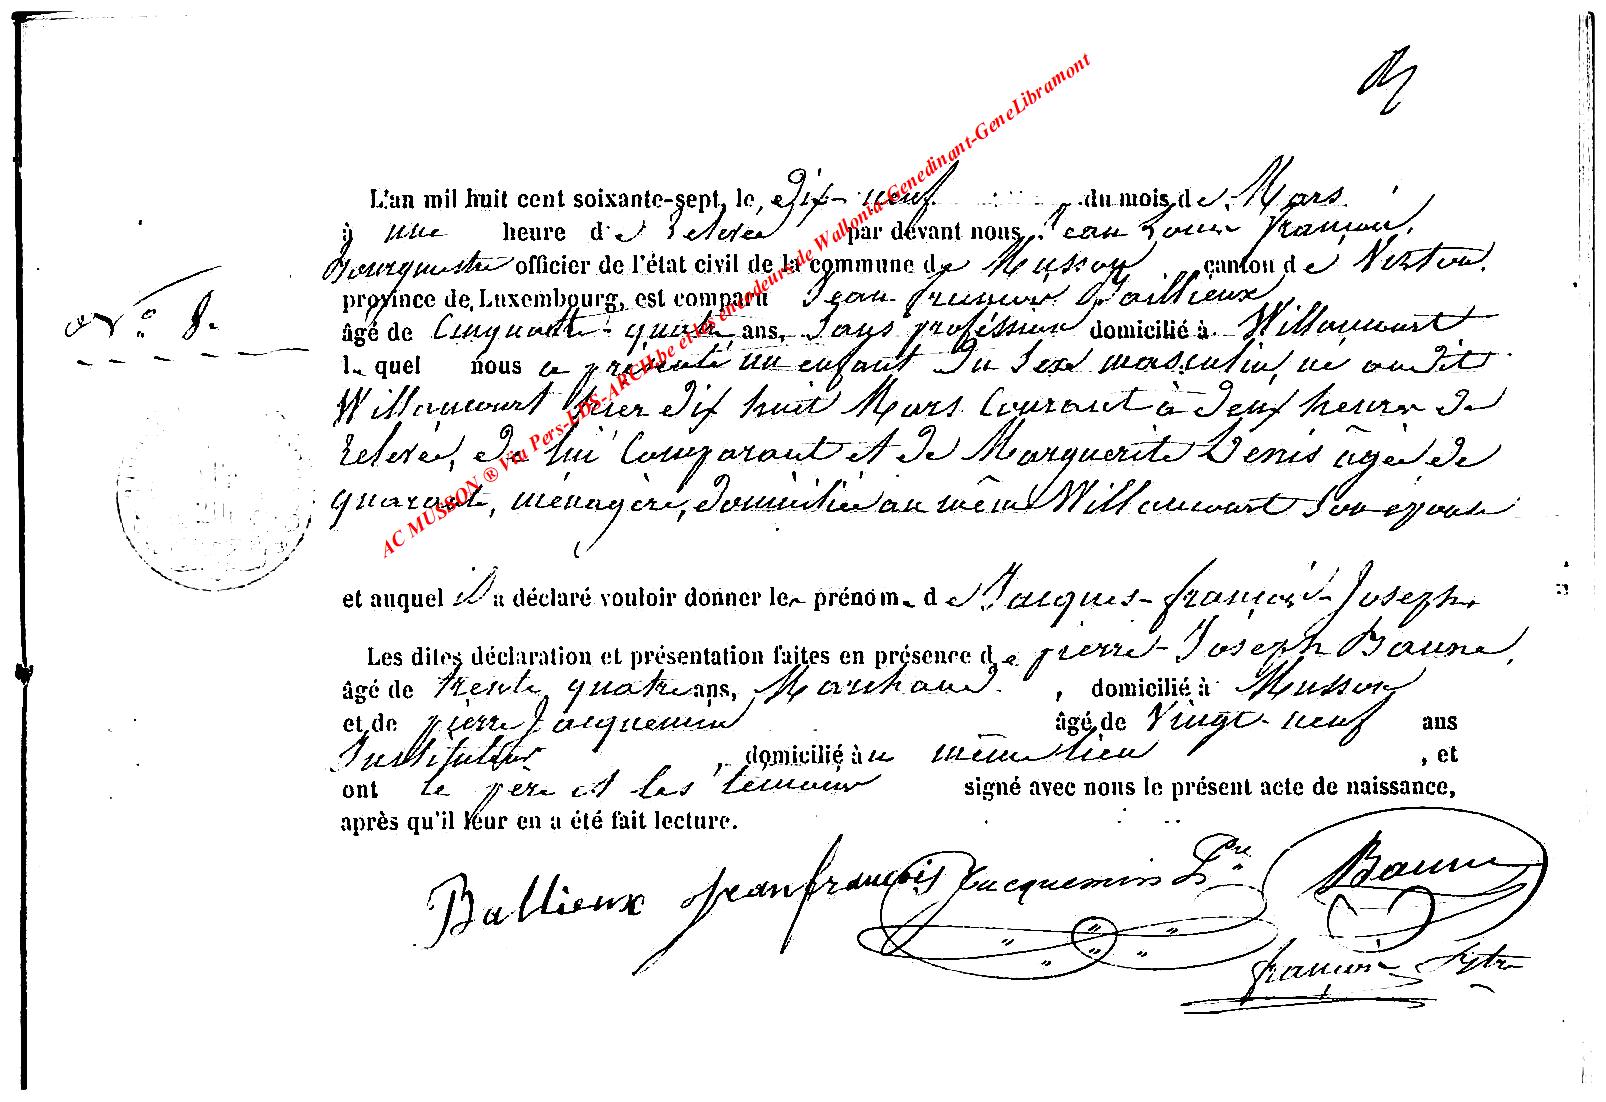 L'an mil huit cent soixante-sept, le, dix-neuf du mois de Mars
à une heure de relevée par devant nous Jean Louis françois,
Bourgmestre officier de l'état civil de la commune de Musson canton de Virton.
province de Luxembourg, est comparu Jean françois Baillieux
N° 8.
âgé de Cinquante-quatre ans, Sans proféssion domicilié à Willancourt
lequel nous a présenté un enfant du Sexe masculin, né audit
Willancourt hier dix huit Mars Courant à deux heures de
relevée, de lui Comparant et de Marguerite Denis âgée de
quarante, ménagère, domiciliée au même Willancourt Son épouse
et auquel il a déclaré vouloir donner les prénoms de Jacques-françois-Joseph.
Les dites déclaration et présentation faites en présence de pierre-Joseph Baune,
âgé de trente quatre ans, Marchand, domicilié à Musson
et de pierre Jacquemin âgé de Vingt-neuf ans
Instituteur, domicilié au même lieu, et
ont le père et les témoins signé avec nous le présent acte de naissance,
après qu'il leur en a été fait lecture.
Ballieux jean françois Jacquemin Pre Baune
françois
AC MUSSON ® Via Pers-LDS-ARCH.be et les encodeurs de Wallonia-Genedinant-GeneLibramont